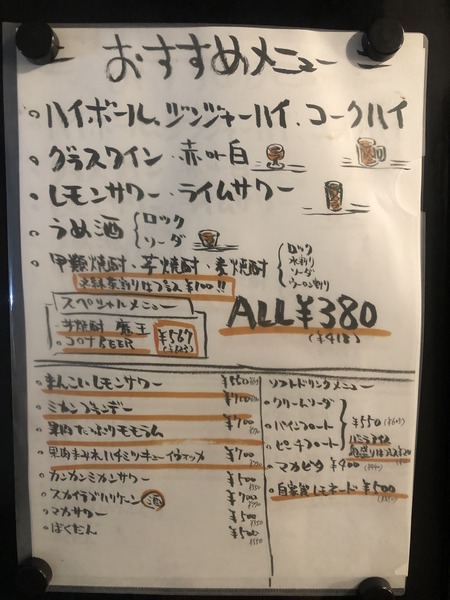 おすすめメニュー
○ハイボール、ジンジャーハイ、コークハイ
○グラスワイン・赤or白
○レモンサワー・ライムサワー
○うめ酒 ロック ソーダ
○甲類焼酎・芋焼酎・麦焼酎 ロック 水割り ソーダ ウーロン割り
¥100!!
スペシャルメニュー
・芋焼酎 魔王 ¥567
ALL¥380
(¥418)
・まんこいレモンサワー ¥550
・ミカンブランデー ¥700
・果肉たっぷりモモラム ¥700
・果肉まみれハチミツキューイウォッカ ¥700
・カンカンミカンサワー ¥500
・スカイラブハリケーン 酒 ¥700
・マカサワー ¥500
・ばくだん ¥500
ソフトドリンクメニュー
・クリームソーダ
・パインフロート ¥550
・ピーチフロート
・マカピタ ¥400
・自家製レモネード ¥500